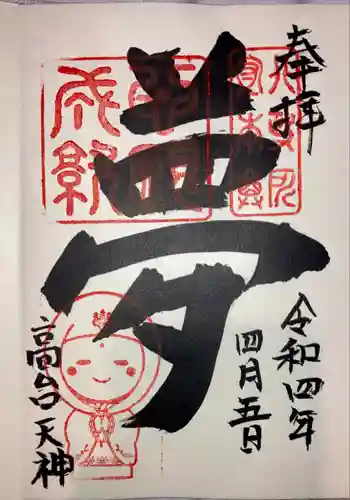 奉拝
夢
令和四年
四月五日
高台天神